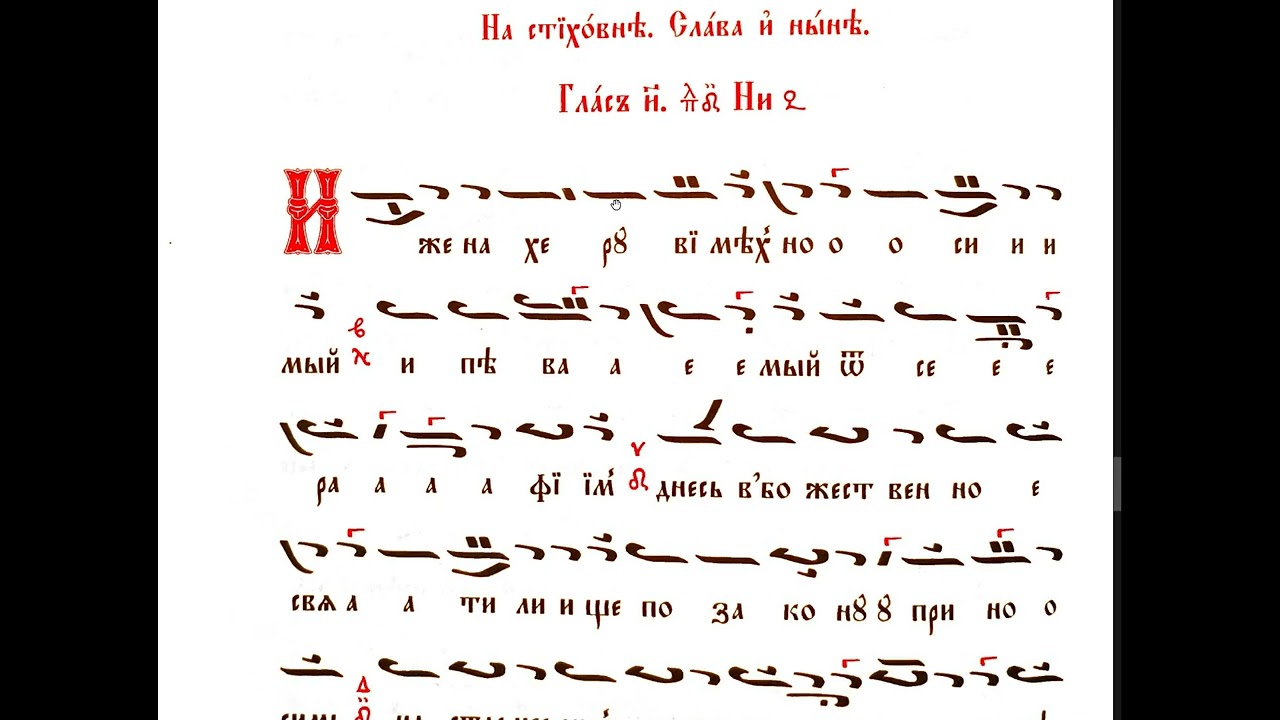 На стїхо́внѣ. Сла́ва и҆ ны́нѣ.
Гла́съ и҃. Ни
И же на хе рꙋ вї мѣх҆ но о о си и и
мый и пѣ ва а е е мый ѿ се е е
ра а а а фї їм҆ днесь в’бо жест вен но е
свѧ а а ти ли и ще по за ко нꙋ ꙋ при но о